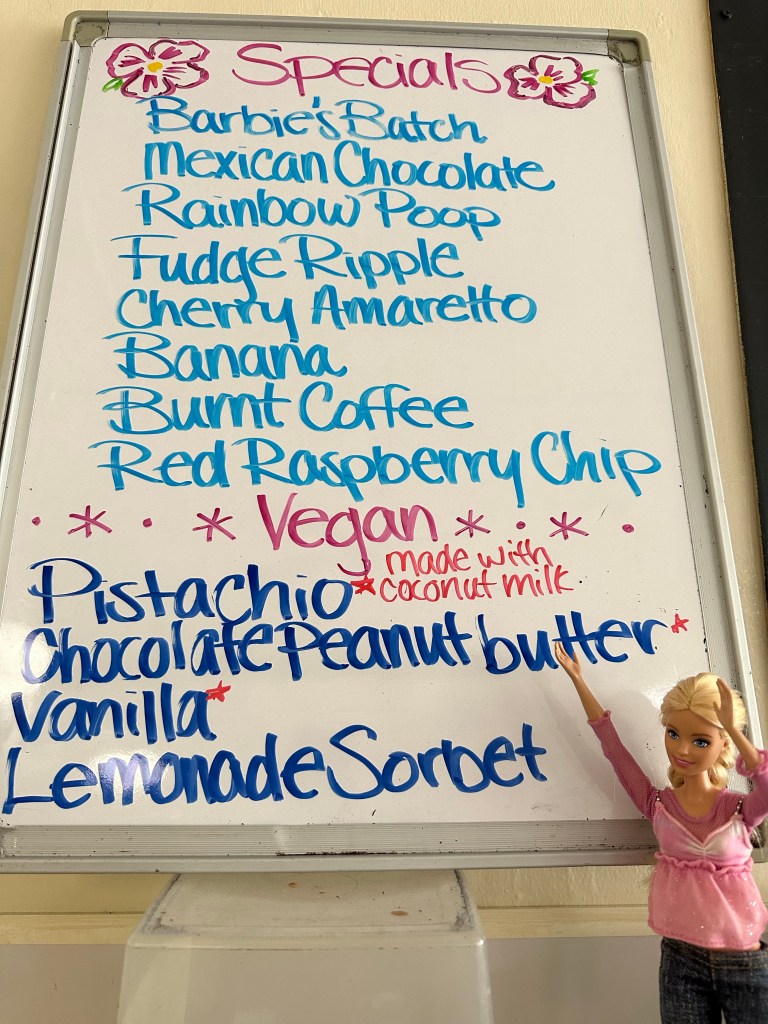 Specials
Barbie's Batch
Mexican Chocolate
Rainbow Poop
Fudge Ripple
Cherry Amaretto
Banana
Burnt Coffee
Red Raspberry Chip
Vegan
made with
Pistachio* coconut milk
Chocolate Peanut butter*
Vanilla*
Lemonade Sorbet